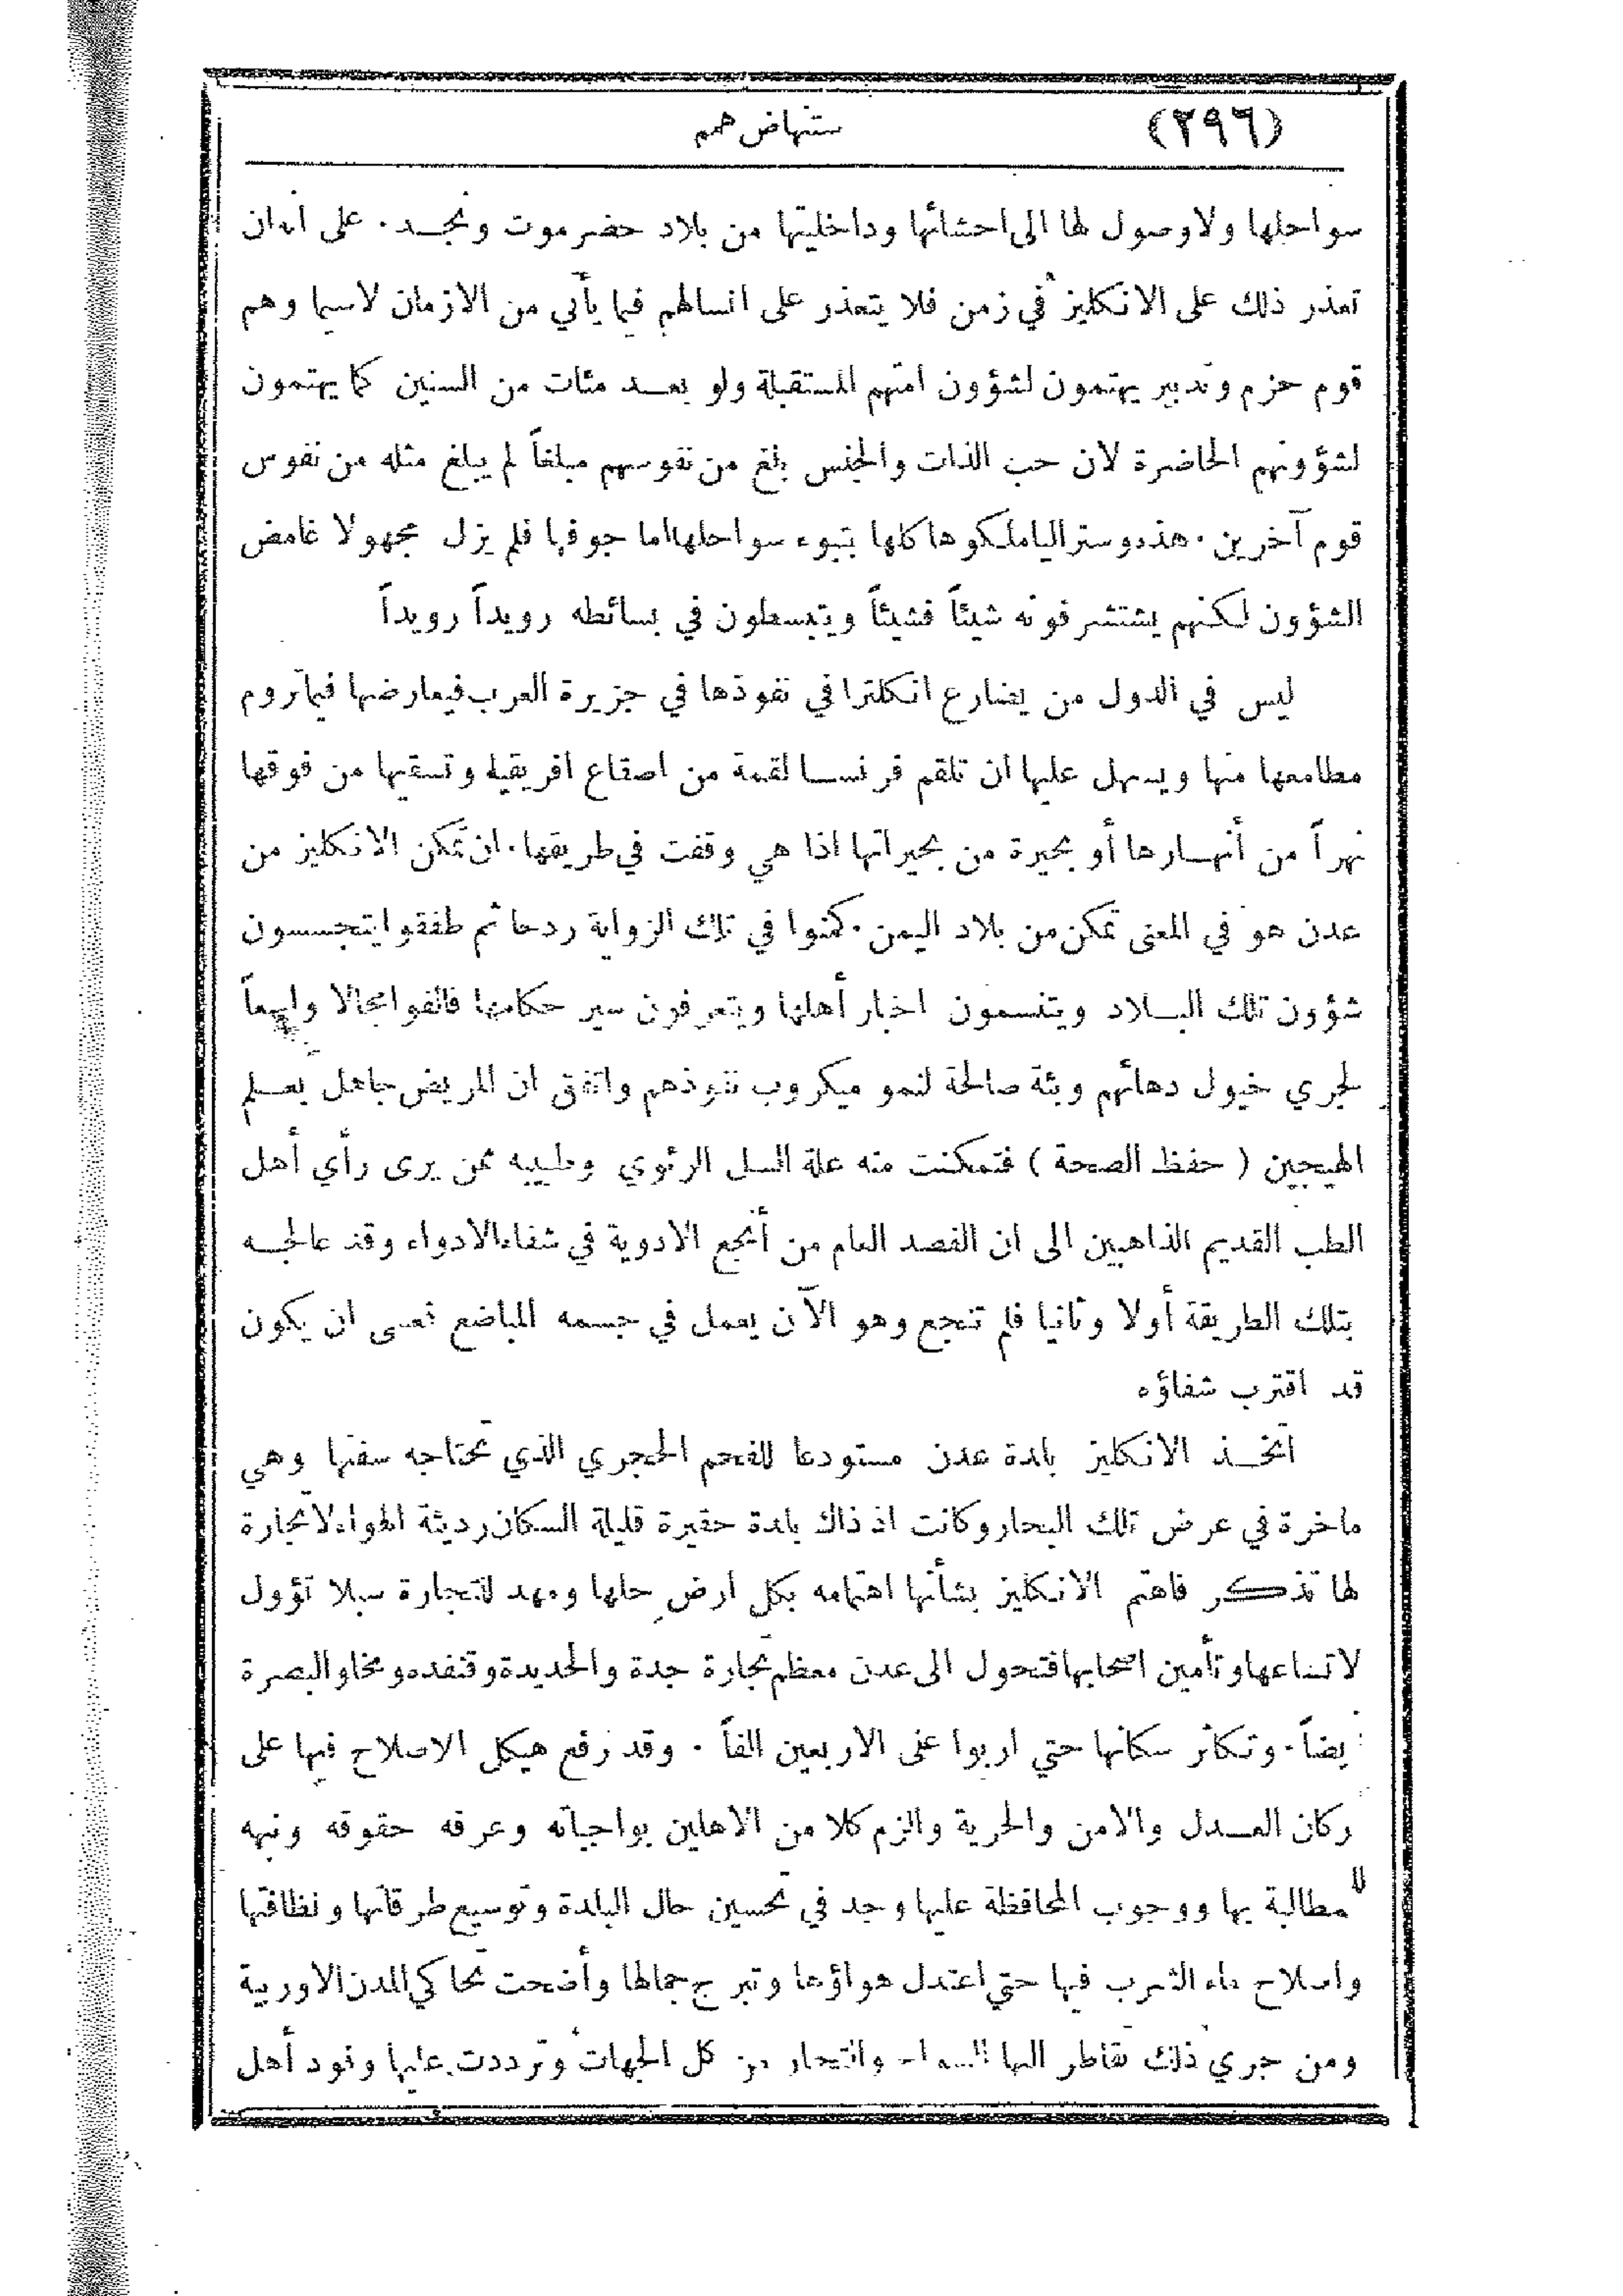 (٢٩٦) ستنهاض همم
سواحلها ولاوصول لها الى احشائها وداخليتها من بلاد حضرموت ونجـد. على انه ان
تعذر ذلك على الانكليز في زمن فلا يتعذر على انسالهم فيما يأتي من الازمان لاسيما وهم
قوم حزم وتدبير يهتمون لشؤون امتهم المستقبلة ولو بعـد مئات من السنين كما يهتمون
لشؤونهم الحاضرة لان حب الذات والجنس بلغ من نفوسهم مبلغاً لم يبلغ مثله من نفوس
قوم آخرين. هذه وستراليا ملكوها كلها بتبوء سواحلها اما جوفها فلم يزل مجهولا غامض
الشؤون لكنهم يشتشرفونه شيئاً فشيئاً ويتبسطون في بسائطه رويداً رويداً
ليس في الدول من يضارع انكلترا في نفوذها في جزيرة العرب فيعارضها فيما تروم
مطامعها منها ويسهل عليها ان تلقم فرنسا لقمة من اصقاع افريقية وتسقيها من فوقها
نهراً من أنهـارها أو بحيرة من بحيراتها اذا هي وقفت في طريقها. ان تمكن الانكليز من
عدن هو في المعنى تمكن من بلاد اليمن. كمنوا في تلك الزواية ردحا ثم طفقوا يتجسسون
شؤون تلك البـلاد ويتنسمون اخبار أهلها ويتعرفون سير حكامها فالفوا مجالا واسعاً
لجري خيول دهائهم وبئة صالحة لنمو ميكروب نفوذهم واتفق ان المريض جاهل بعـلم
الهيجين ( حفظ الصحة ) فتمكنت منه علة السل الرئوي وطبيبه ممن يرى رأي أهل
الطب القديم الذاهبين الى ان الفصد العام من أنجع الادوية في شفاء الادواء وقد عالجـه
بتلك الطريقة أولا وثانيا فلم تنجع وهو الآن يعمل في جسمه المباضع فعسى ان يكون
قد اقترب شفاؤه
اتخـذ الانكليز بلدة عدن مستودعا للفحم الحجري الذي تحتاجه سفنها وهي
ماخرة في عرض تلك البحار وكانت اذ ذاك بلدة حقيرة قليلة السكان رديئة الهواء لا تجارة
لها تذكـر فاهتم الانكليز بشأنها اهتمامه بكل ارض حلها ومهد للتجارة سبلا تؤول
لاتساعها وتأمين اصحابها فتحول الى عدن معظم تجارة جدة والحديدة وقنفده ومخا والبصرة
يضاً. وتكاثر سكانها حتي اربوا على الاربعين الفاً. وقد رفع هيكل الاصلاح فيها على
ركان العـدل والامن والحرية والزم كلا من الاهلين بواجباته وعرفه حقوقه ونبهه
للمطالبة بها ووجوب المحافظة عليها وجد في تحسين حال البلدة وتوسيع طرقاتها ونظافتها
واصلاح ماء الشرب فيها حتي اعتدل هواؤها وتبرج جمالها وأضحت تحاكي المدن الاوربية
ومن جري ذلك تقاطر اليها والتجار من كل الجهات وترددت عليها وفود أهل